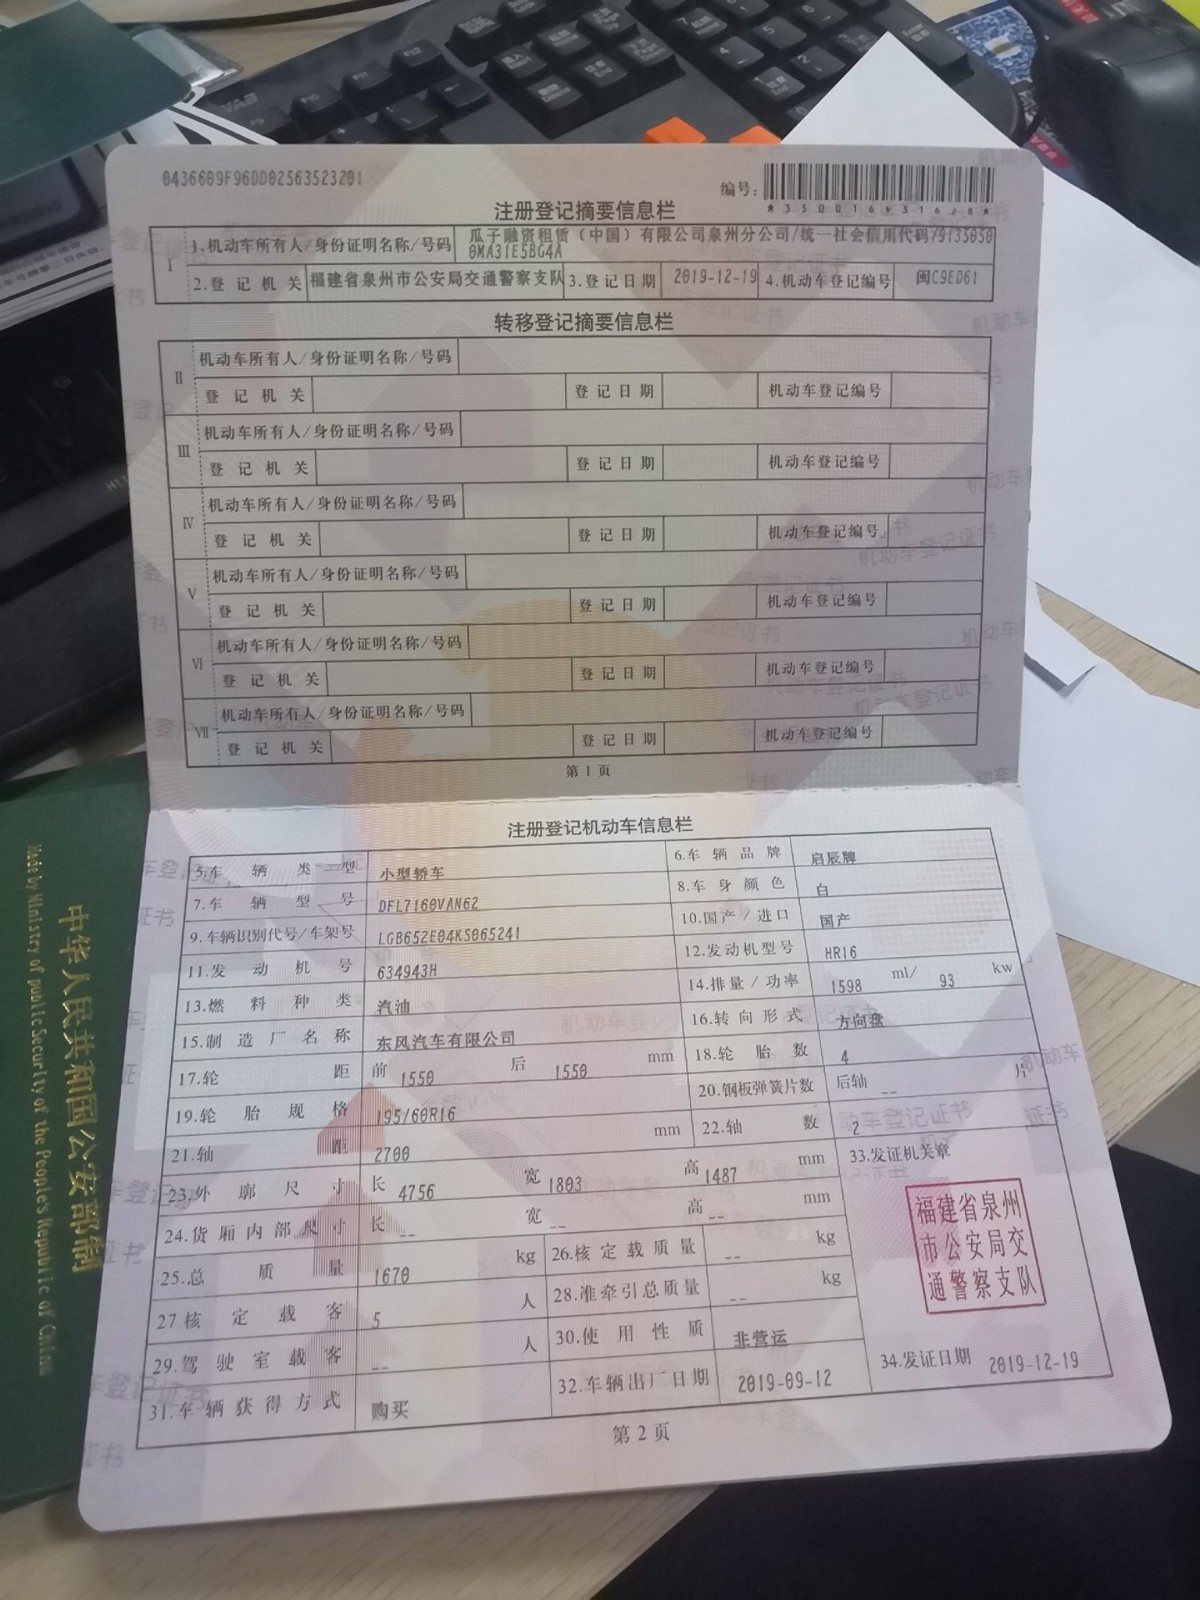 0436609F96DD02563523201
编号:
*350016931628*
注册登记摘要信息栏
I
1.机动车所有人/身份证明名称/号码 瓜子融资租赁（中国）有限公司泉州分公司/统一社会信用代码/91350500MA31E5BG4A
2.登记机关 福建省泉州市公安局交通警察支队 3.登记日期 2019-12-19 4.机动车登记编号 闽C9ED61
转移登记摘要信息栏
II
机动车所有人/身份证明名称/号码
登记机关 登记日期 机动车登记编号
III
机动车所有人/身份证明名称/号码
登记机关 登记日期 机动车登记编号
IV
机动车所有人/身份证明名称/号码
登记机关 登记日期 机动车登记编号
V
机动车所有人/身份证明名称/号码
登记机关 登记日期 机动车登记编号
VI
机动车所有人/身份证明名称/号码
登记机关 登记日期 机动车登记编号
VII
机动车所有人/身份证明名称/号码
登记机关 登记日期 机动车登记编号
第1页
注册登记机动车信息栏
5.车辆类型 小型轿车 6.车辆品牌 启辰牌
7.车辆型号 DFL7160VAN62 8.车身颜色 白
9.车辆识别代号/车架号 LGB652E04KS065241 10.国产/进口 国产
11.发动机号 634943H 12.发动机型号 HR16
13.燃料种类 汽油 14.排量/功率 1598 ml/ 93 kw
15.制造厂名称 东风汽车有限公司 16.转向形式 方向盘
17.轮距 前 1550 后 1550 mm 18.轮胎数 4
19.轮胎规格 195/60R16 20.钢板弹簧片数 后轴 -- 片
21.轴距 2700 mm 22.轴数 2
23.外廓尺寸 长 4756 宽 1803 高 1487 mm 33.发证机关章
24.货厢内部尺寸 长 -- 宽 -- 高 -- mm
25.总质量 1670 kg 26.核定载质量 -- kg
27核定载客 5 人 28.准牵引总质量 -- kg
29.驾驶室载客 -- 人 30.使用性质 非营运
31.车辆获得方式 购买 32.车辆出厂日期 2019-09-12 34.发证日期 2019-12-19
福建省泉州
市公安局交
通警察支队
第2页
中华人民共和国公安部制
Made by Ministry of public Security of the Peoples Republic of China